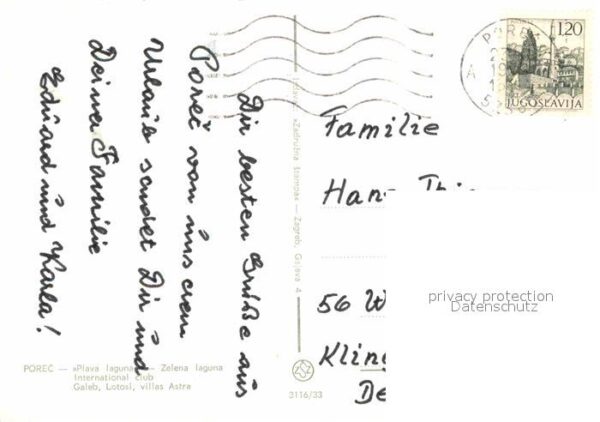 Die besten Grüße aus
Poreč von unserem
Urlaub sendet Dir und
Deiner Familie
Eduard und Karla!
Familie
56 W
POREČ — »Plava laguna« — Zelena laguna
International club
Galeb, Lotosi, villas Astra
»Zadružna štampa« — Zagreb, Gajeva 4
3116/33
1.20
JUGOSLAVIJA
POREČ
privacy protection
Datenschutz